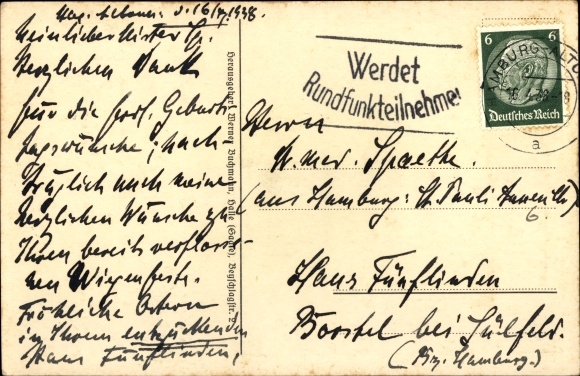 Mein lieber Mister G.
Herzlichen Dank
für die frdl. Geburts-
tagswünsche; nach-
träglich auch meine
herzlichen Wünsche zu
Ihrem bereits verfloss-
nen Wiegenfeste.
Fröhliche Ostern
in Ihrem entzückenden
Haus Fünflinden,
Herausgeber: Werner Buchmann, Halle (Saale), Beyschlagstr.
Werdet
Rundfunkteilnehmer
6 6
Deutsches Reich
HAMBURG-ALTONA
a
Herrn
Dr. med. Spaethe.
(aus Hamburg: St. Pauli
6.
Haus Fünflinden
Borstel bei Sülfeld.
(Bz. Hamburg.)